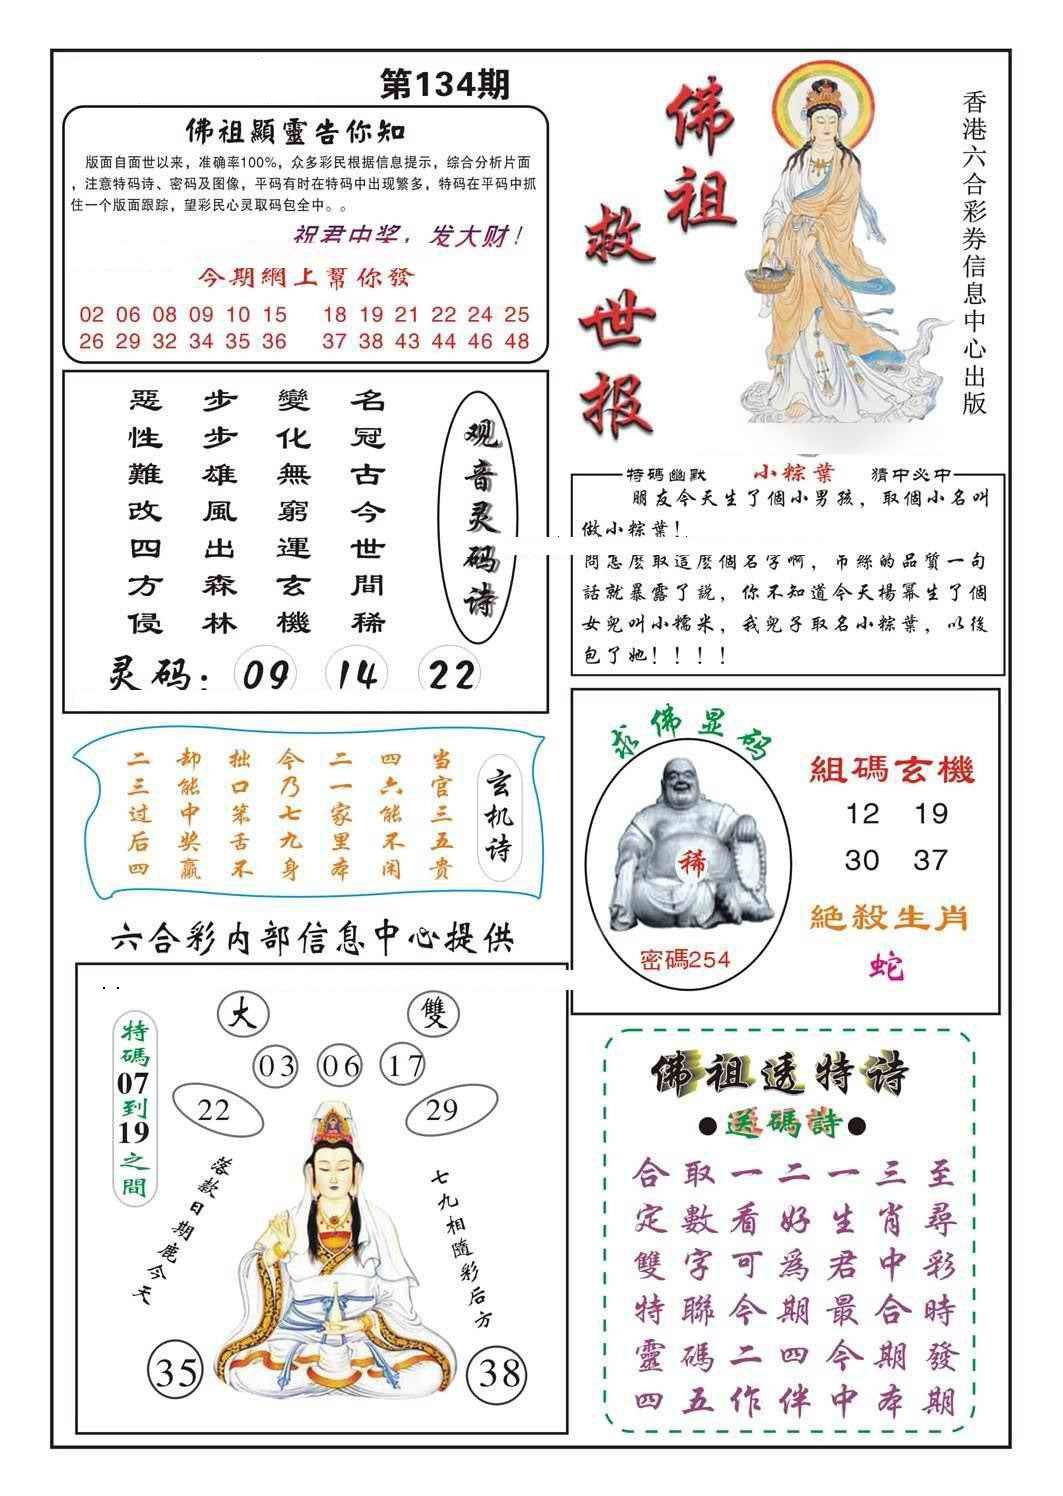 第134期
佛祖顯靈告你知
版面自面世以来，准确率100%，众多彩民根据信息提示，综合分析片面
，注意特码诗、密码及图像，平码有时在特码中出现繁多，特码在平码中抓
住一个版面跟踪，望彩民心灵取码包全中。。
祝君中奖，发大财！
今期網上幫你發
02 06 08 09 10 15 18 19 21 22 24 25
26 29 32 34 35 36 37 38 43 44 46 48
佛祖
救世报
香港六合彩券信息中心出版
观音灵码诗
名冠古今世間稀
變化無窮運玄機
步步雄風出森林
惡性難改四方侵
灵码：09 14 22
特碼幽默 小粽葉 猜中必中
朋友今天生了個小男孩，取個小名叫
做小粽葉！
問怎麽取這麽個名字啊，币絲的品質一句
話就暴露了説，你不知道今天楊冪生了個
女兒叫小糯米，我兒子取名小粽葉，以後
包了她！！！！
玄机诗
当官三五贵
四六能不闲
二一家里本
今乃七九身
拙口笨舌不
却能中奖赢
二三过后四
求佛显码
稀
密碼254
組碼玄機
12 19
30 37
絕殺生肖
蛇
六合彩内部信息中心提供
大 雙
03 06 17
22 29
特碼07到19之間
落款日期鹿今天
七九相隨彩后方
35 38
佛祖透特诗
●送碼詩●
合取一二一三至
定數看好生肖尋
雙字可爲君中彩
特聯今期最合時
靈碼二四今期發
四五作伴中本期